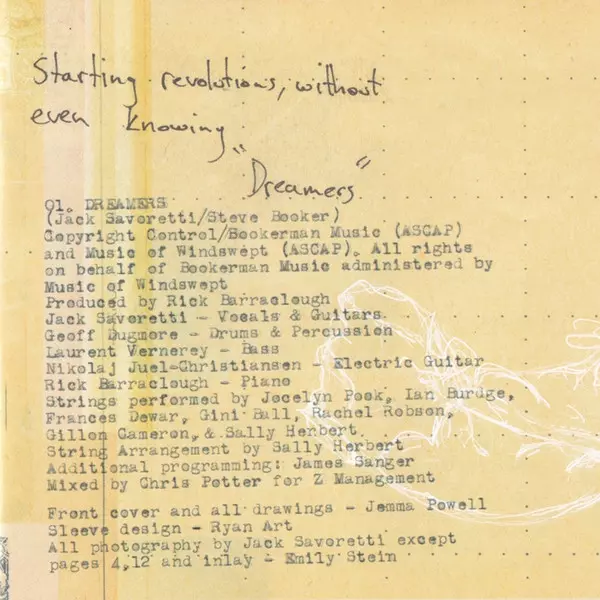 Starting revolutions, without
even knowing
"Dreamers"
01. DREAMERS
(Jack Savoretti/Steve Booker)
Copyright Control/Bookerman Music (ASCAP)
and Music of Windswept (ASCAP). All rights
on behalf of Bookerman Music administered by
Music of Windswept
Produced by Rick Barraclough
Jack Savoretti - Vocals & Guitars
Geoff Dugmore - Drums & Percussion
Laurent Vernerey - Bass
Nikolaj Juel-Christiansen - Electric Guitar
Rick Barraclough - Piano
Strings performed by Jocelyn Pook, Ian Burdge,
Frances Dewar, Gini Ball, Rachel Robson,
Gillon Cameron, & Sally Herbert
String Arrangement by Sally Herbert
Additional programming: James Sanger
Mixed by Chris Potter for Z Management
Front cover and all drawings - Jemma Powell
Sleeve design - Ryan Art
All photography by Jack Savoretti except
pages 4,12 and inlay - Emily Stein